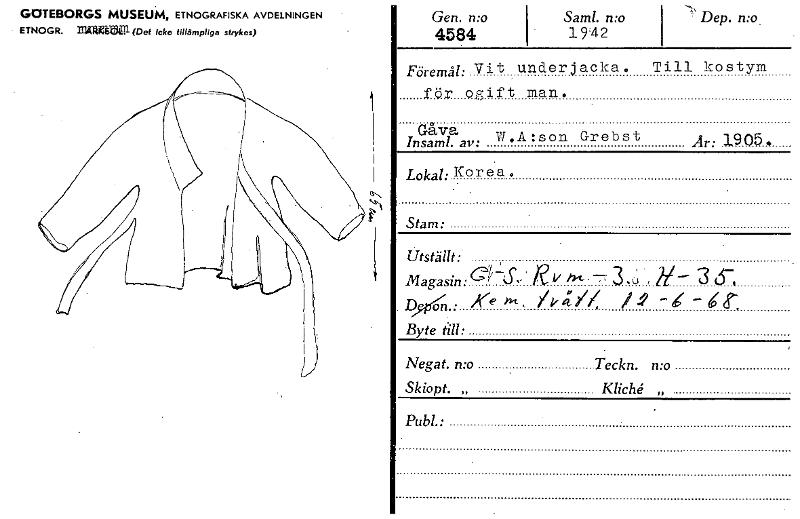 GÖTEBORGS MUSEUM, ETNOGRAFISKA AVDELNINGEN
ETNOGR. (Det icke tillämpliga strykes)
65 cm
Gen. n:o
4584
Saml. n:o
1942
Dep. n:o
Föremål: Vit underjacka. Till kostym
för ogift man.
Gåva
Insaml. av: W.A:son Grebst År: 1905.
Lokal: Korea.
Stam:
Utställt:
Magasin: G-S. Rvm-3. H-35.
Depon.: Kem. tvätt. 12-6-68.
Byte till:
Negat. n:o Teckn. n:o
Skiopt. „ Kliché „
Publ.: